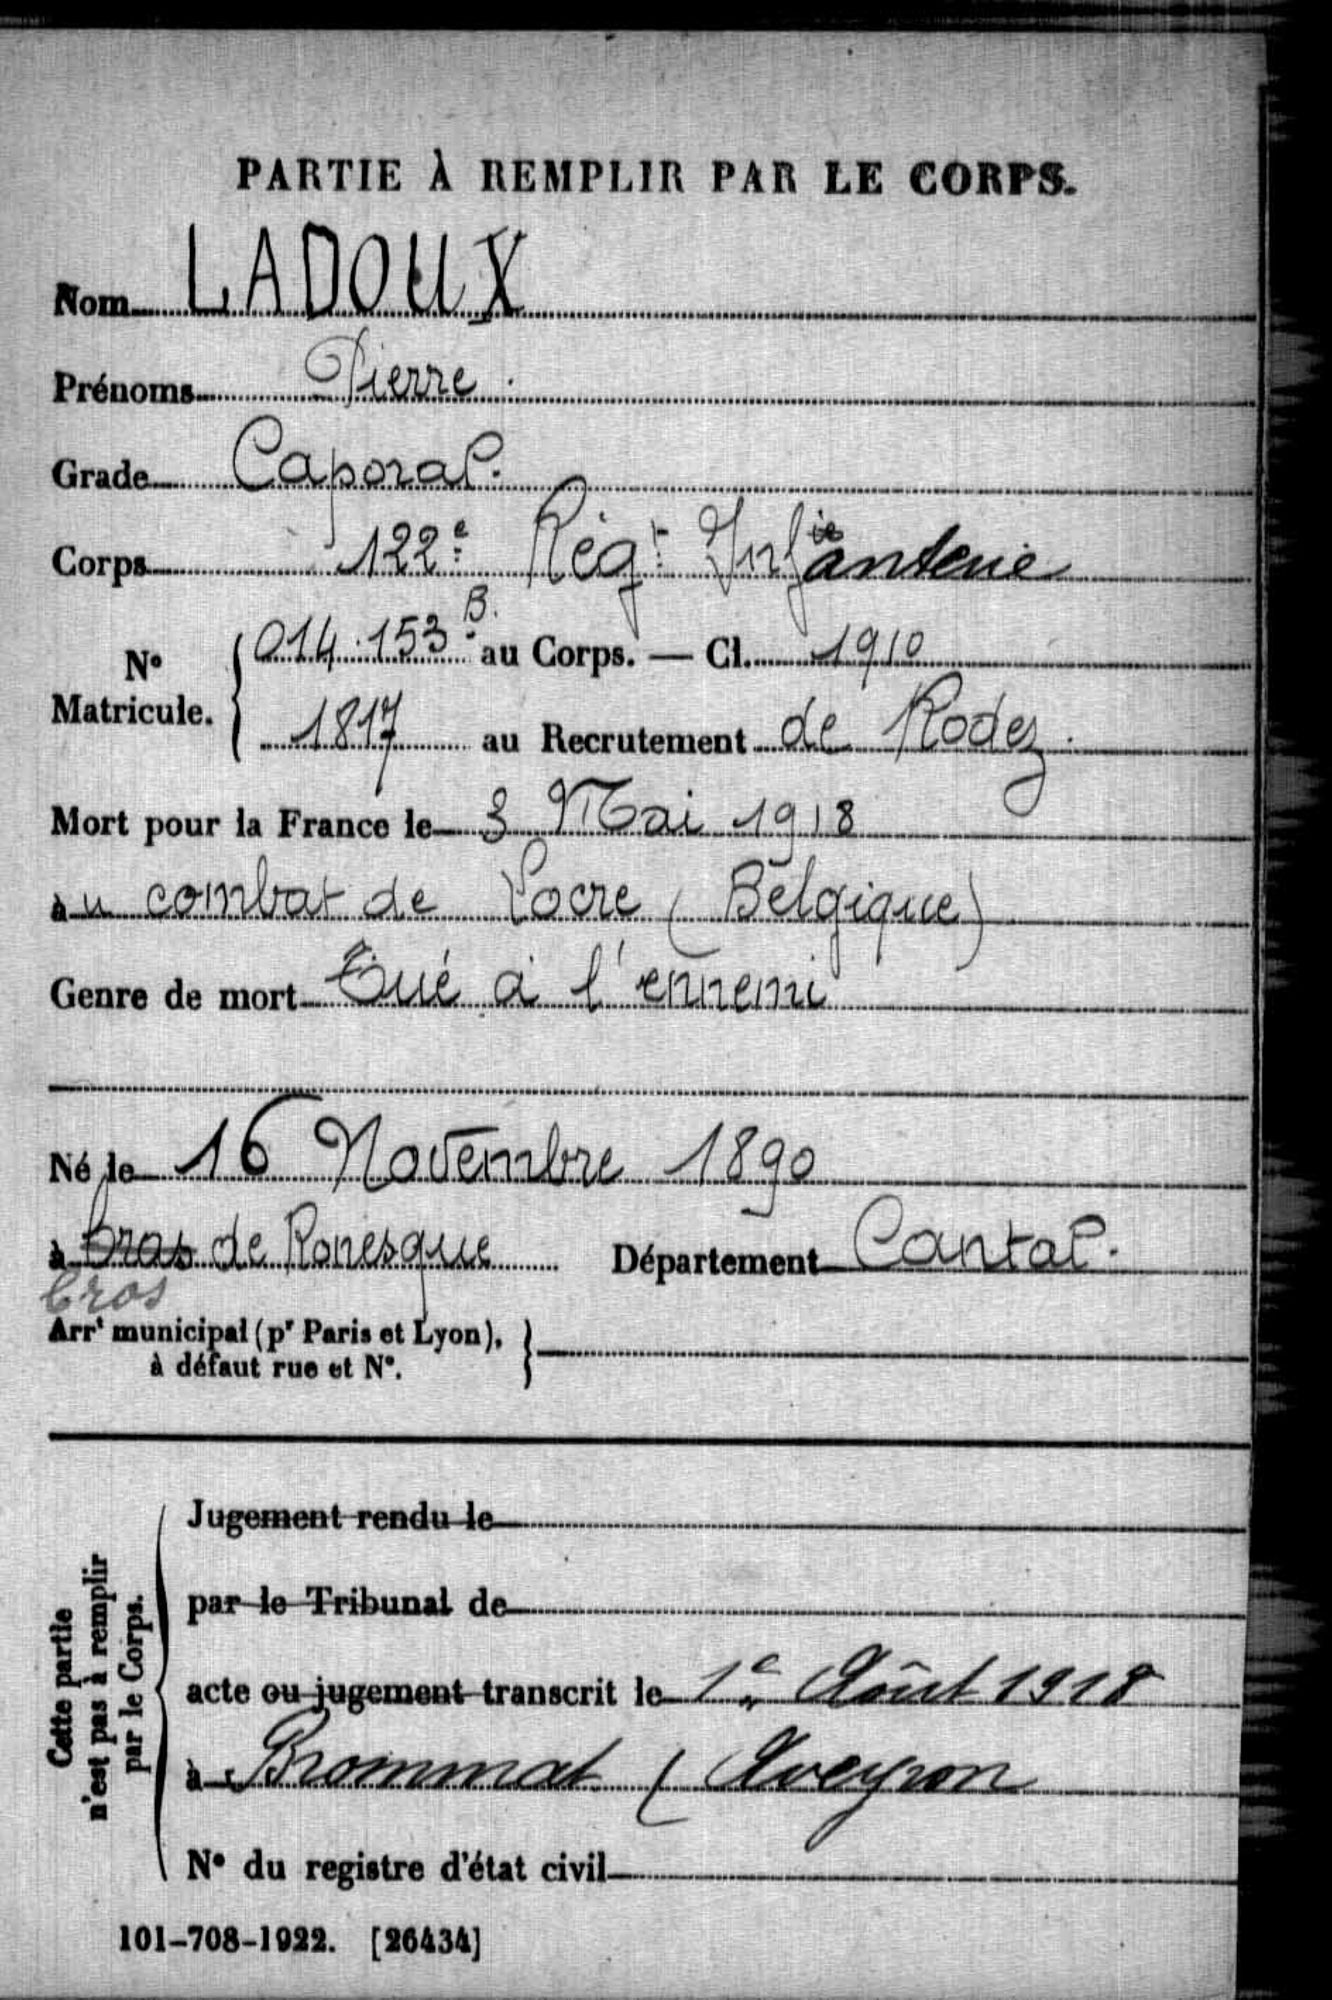 PARTIE À REMPLIR PAR LE CORPS.
Nom LADOUX
Prénoms Pierre.
Grade Caporal.
Corps 122e Régt Infanterie
N° Matricule. { 014.153 B. au Corps. — Cl. 1910
1817 au Recrutement de Rodez.
Mort pour la France le 3 Mai 1918
à u combat de Locre (Belgique)
Genre de mort Tué à l'ennemi
Né le 16 Novembre 1890
à Cras de Ronesque Département Cantal.
Cros
Arrt municipal (pr Paris et Lyon),
à défaut rue et N°.
Cette partie
n'est pas à remplir
par le Corps.
Jugement rendu le
par le Tribunal de
acte ou jugement transcrit le 1er Août 1918
à Brommat (Aveyron
N° du registre d'état civil
101-708-1922. [26434]